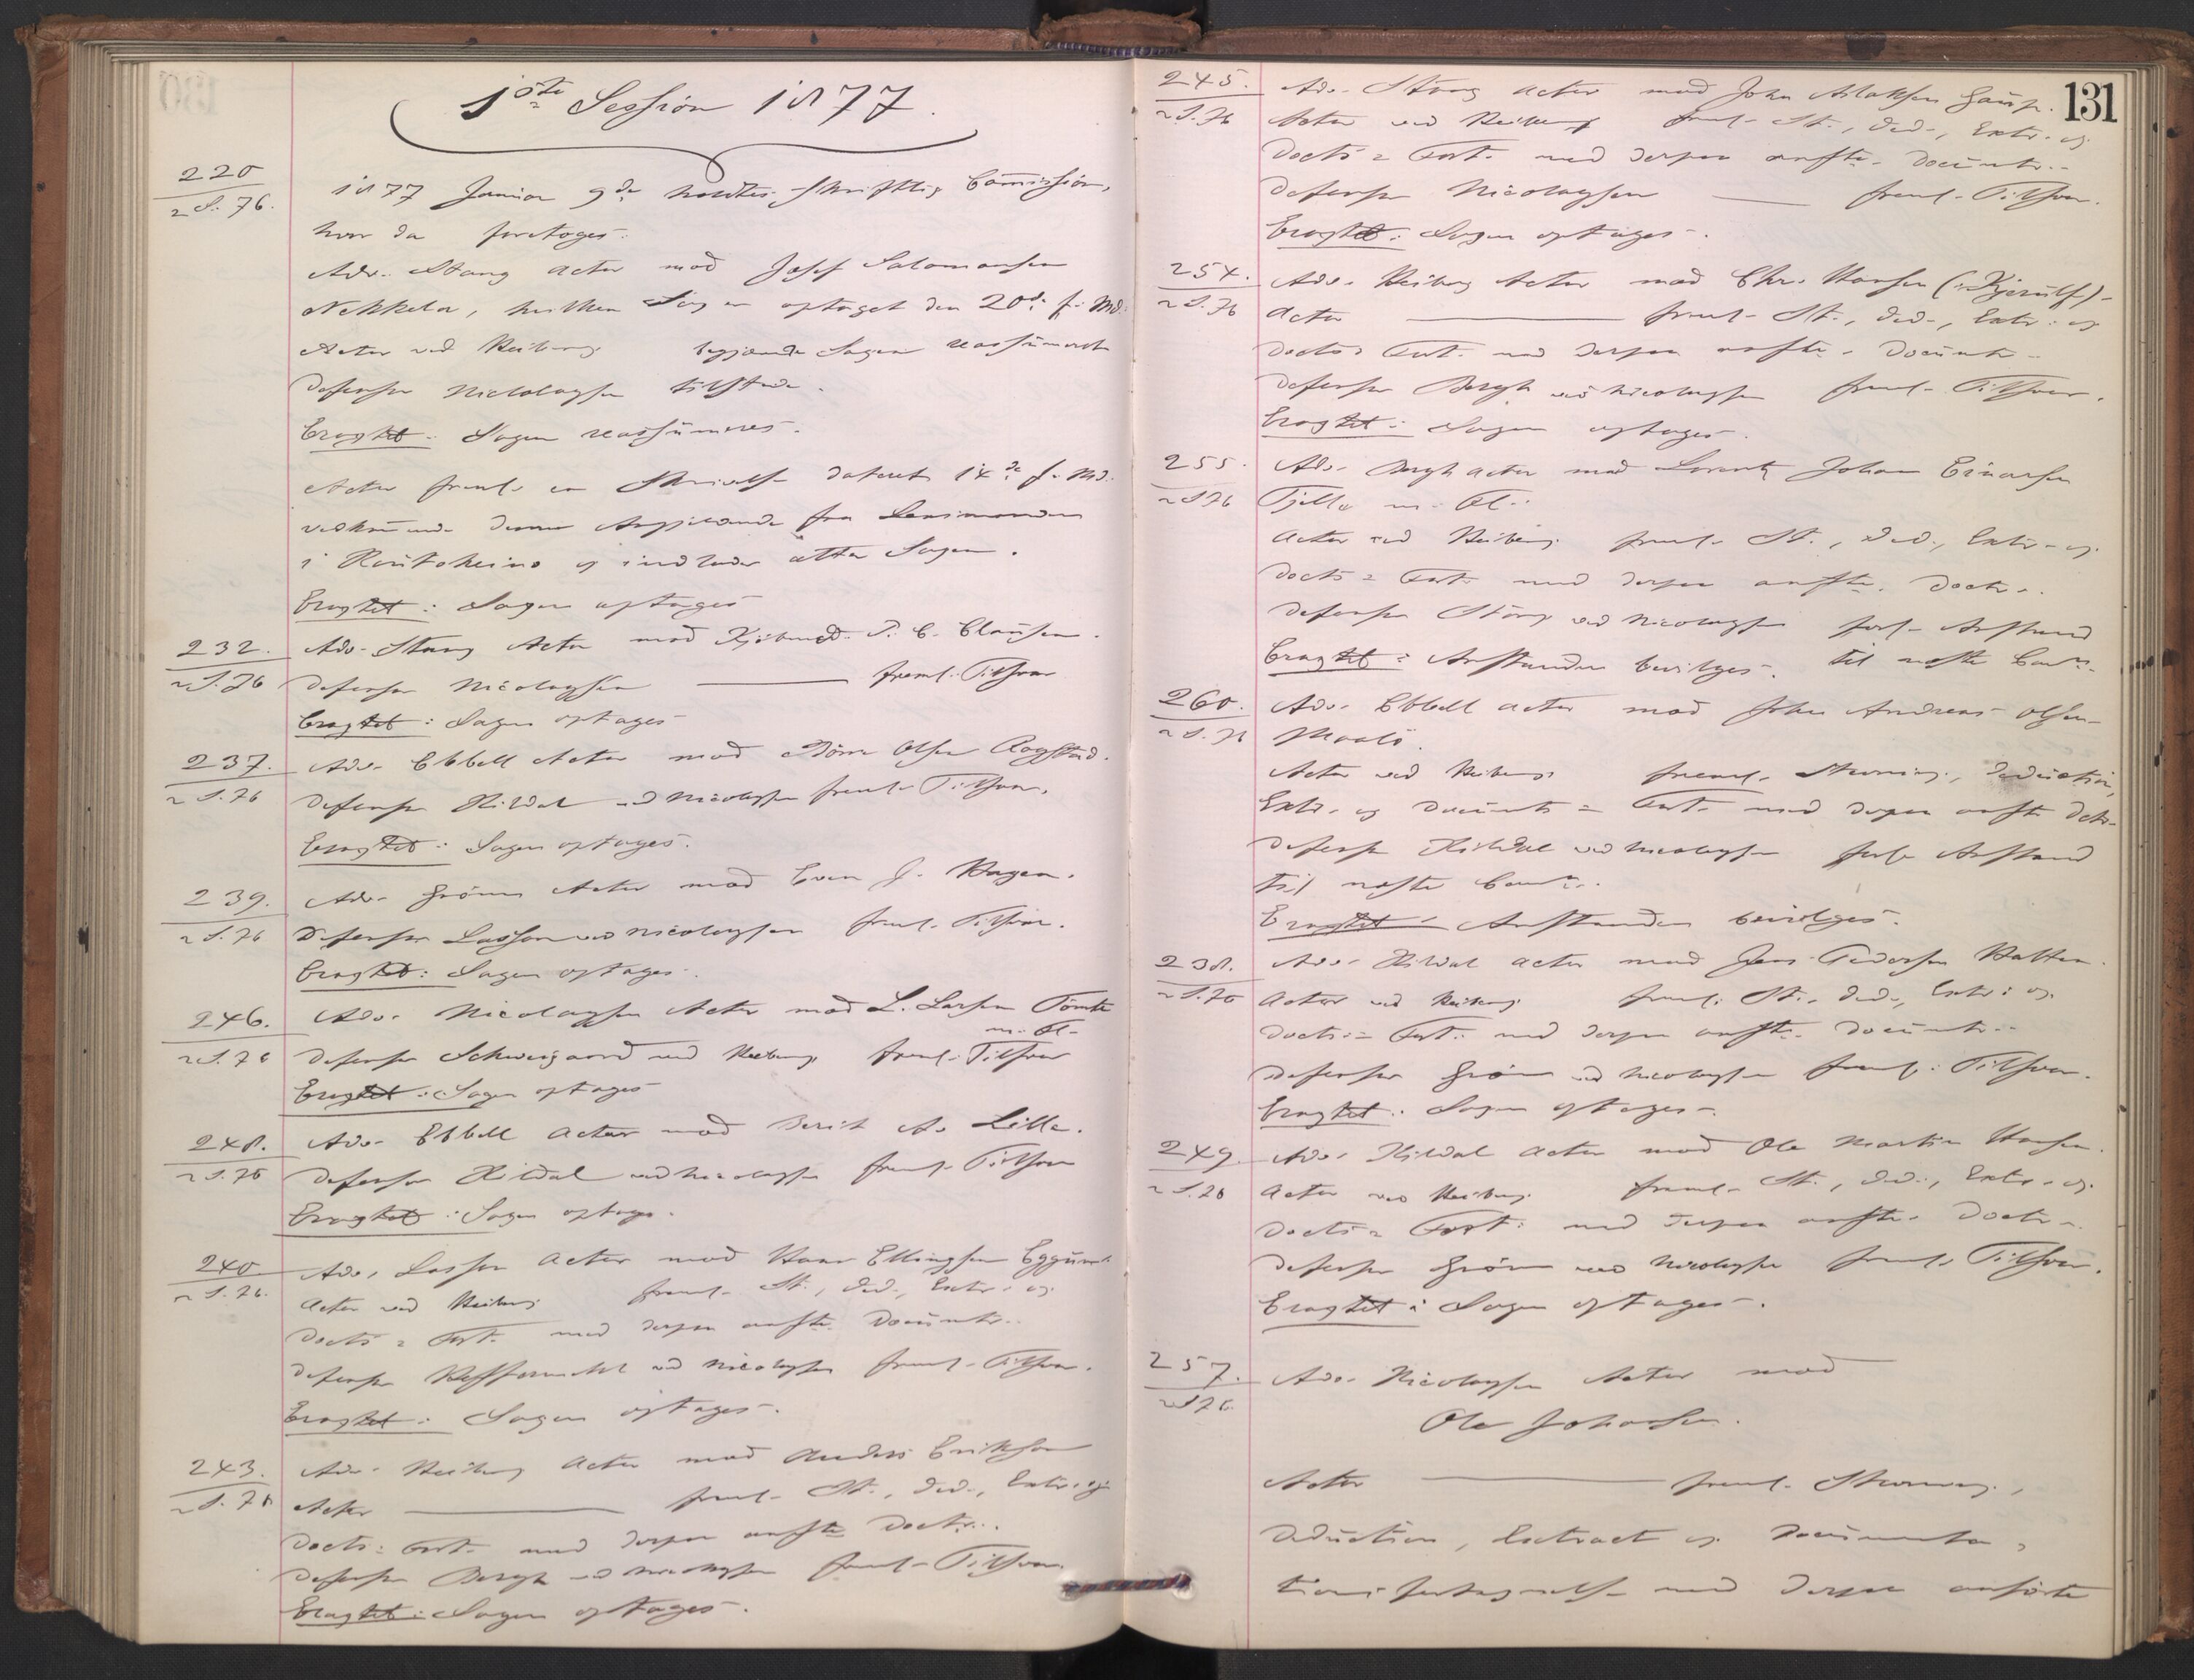 1ste Session 1877.
220
2 S. 76.
1877 Januar 9de holdtes skriftlig Commission,
hvor da foretoges:
Adv. Stang Actor mod Josef Salomonsen
Nekkela, hvilken Sag er optaget den 20de f. Md.
Actor ved Heiberg begjærede Sagen reassumeret
Defensor Nicolaysen tilstede.
Eragtet: Sagen reassumeres.
Actor freml. en Skrivelse dateret 14de f. Md.
vedkommende denne Angjældende fra Lensmanden
i Kautokeino og indlader atter Sagen.
Eragtet: Sagen optages
232.
2 S. 76
Adv. Stang Actor mod Kjøbmd. P. C. Clausen.
Defensor Nicolaysen — freml. Tilsvar
Eragtet: Sagen optages
237.
2 S. 76
Adv. Ebbell Actor mod Olsen Rogstad.
Defensor Hildal ved Nicolaysen freml. Tilsvar.
Eragtet: Sagen optages.
239.
2 S. 76
Adv. Grönn Actor mod Even J. Hagen.
Defensor Lasson ved Nicolaysen freml. Tilsvar.
Eragtet: Sagen optages.
246.
2 S. 76
Adv. Nicolaysen Actor mod L. Larsen Tömte
m. Fl.
Defensor Schweigaard ved Heiberg freml. Tilsvar
Eragtet: Sagen optages
248.
2 S. 76
Adv. Ebbell Actor mod Berit A. Lille.
Defensor Hildal ved Nicolaysen freml. Tilsvar
Eragtet: Sagen optages.
240
2 S. 76.
Adv. Lasson Actor mod Hans Ellingsen Eggum.
Actor ved Heiberg freml. St., Ded., Extr. og
Docts = Fort. med derpaa anførte Documtr.
Defensor ved Nicolaysen freml. Tilsvar.
Eragtet: Sagen optages.
243.
2 S. 76
Adv. Heiberg Actor mod Anders Eriksen
Actor — freml. St., Ded., Extr. og
Docts = Fort. med derpaa anførte Doctr.
Defensor Bergh ved Nicolaysen freml. Tilsvar.
Eragtet: Sagen optages.
131
245.
2 S. 76
Adv. Stang Actor mod John Aslaksen
Actor ved Heiberg freml. St., Ded., Extr. og
Docts = Fort. med derpaa anførte Documtr.
Defensor Nicolaysen — freml. Tilsvar.
Eragtet: Sagen optages.
254.
2 S. 76
Adv. Heiberg Actor mod Chr. Hansen (: Kjerulf)
Actor — freml. St., Ded., Extr. og
Docts = Fort. med derpaa anførte Documtr.
Defensor Bergh ved Nicolaysen freml. Tilsvar.
Eragtet: Sagen optages.
255.
2 S. 76
Adv. Bergh Actor mod Lorentz Johan Einarsen
Tjelle m. Fl.
Actor ved Heiberg freml. St., Ded., Extr. og
Docts = Fort. med derpaa anførte Doctr.
Defensor Stang ved Nicolaysen forl. Anstand
Eragtet: Anstanden bevilges. til næste Comm.
260.
2 S. 76
Adv. Ebbell Actor mod John Andreas Olsen
Actor ved Heiberg freml. Stevning, Deduction,
Extr. og Documts = Fort. med derpaa anførte Dctr.
Defensor Hildal ved Nicolaysen forl. Anstand
til næste Comm.
Eragtet: Anstanden bevilges.
238.
2 S. 76
Adv. Hildal Actor mod Jens Pedersen Hatten.
Actor ved Heiberg freml. St., Ded., Extr. og
Docts = Fort. med derpaa anførte Documtr.
Defensor Grön ved Nicolaysen freml. Tilsvar.
Eragtet: Sagen optages.
249
2 S. 76
Adv. Hildal Actor mod Ole Martin Hansen.
Actor ved Heiberg freml. St., Ded., Extr. og
Docts = Fort. med derpaa anførte Doctr.
Defensor Grön ved Nicolaysen freml. Tilsvar.
Eragtet: Sagen optages.
257.
2 S. 76.
Adv. Nicolaysen Actor mod
Ole Johansen.
Actor — freml. Stevning,
Deduction, Extract og Documenta-
tionsfortegnelse med derpaa anførte